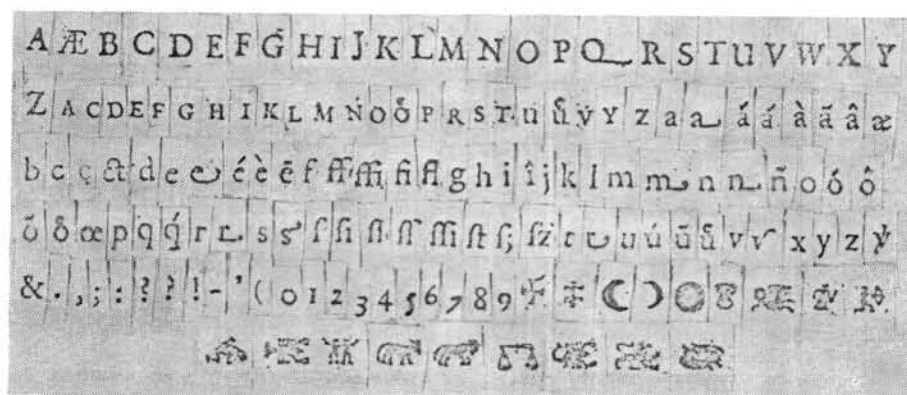 A Æ B C D E F G H I J K L M N O P Q R S T U V W X Y
Z A C D E F G H I K L M N O P R S T U V Y Z a a á á à ã â æ
b c ç ct d e e é è ē f ff ffi fi fl g h i î j k l m m n n ñ o ó ô
õ œ p q r r s s ſ ſi ſl ſſ ſſi ſt ſ; ſz t t u ú ũ v v x y z
& . , ; : ? ? ! - ' ( 0 1 2 3 4 5 6 7 8 9 ☾ ☽